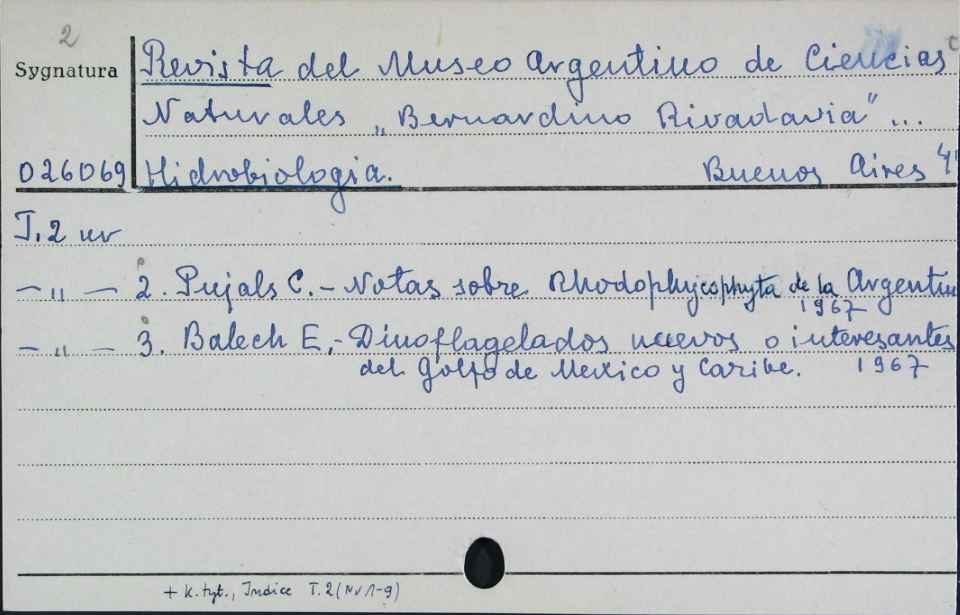 2
Sygnatura
Revista del Museo Argentino de Ciencias
Naturales „Bernardino Rivadavia” ...
026069 Hidrobiologia. Buenos Aires 4°
T. 2 nr
— „ — 2. Pujals C. - Notas sobre Rhodophycophyta de la Argentin
1967
— „ — 3. Balech E. - Dinoflagelados nuevos o interesantes
del Golfo de Mexico y Caribe. 1967
+ k. tyt., Indice T. 2 (Nr 1-9)